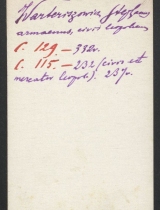 Warteriszowicz Stephanus
armaenus, civis leopolien.
C. 129. – 332v.
C. 115. – 232 (civis et
mercator leopol.). 237v.